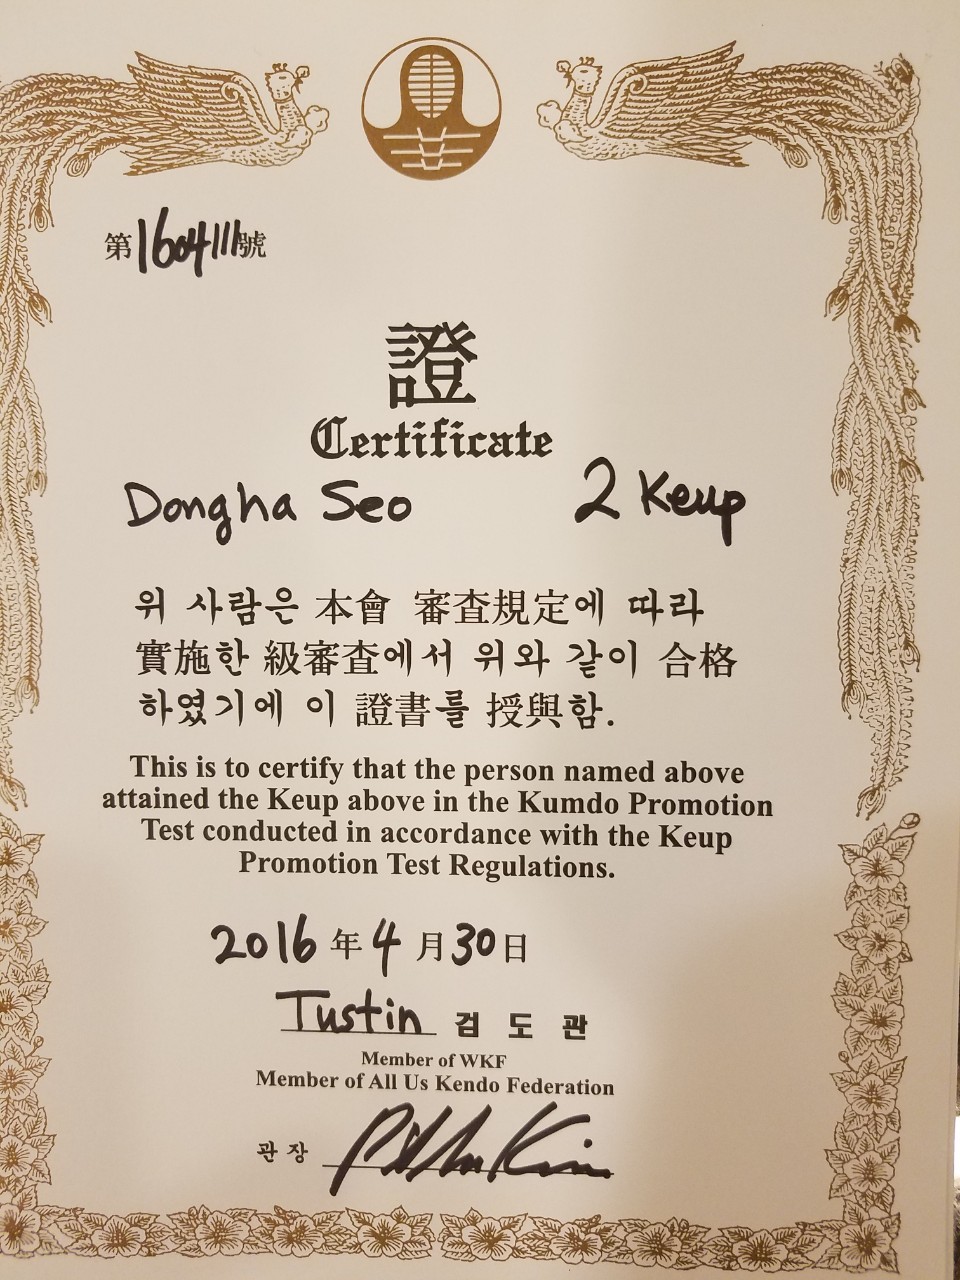 第1604111號
證
Certificate
Dongha Seo 2 Keup
위 사람은 本會 審査規定에 따라
實施한 級審査에서 위와 같이 合格
하였기에 이 證書를 授與함.
This is to certify that the person named above
attained the Keup above in the Kumdo Promotion
Test conducted in accordance with the Keup
Promotion Test Regulations.
2016 年 4 月 30 日
Tustin 검 도 관
Member of WKF
Member of All Us Kendo Federation
관 장